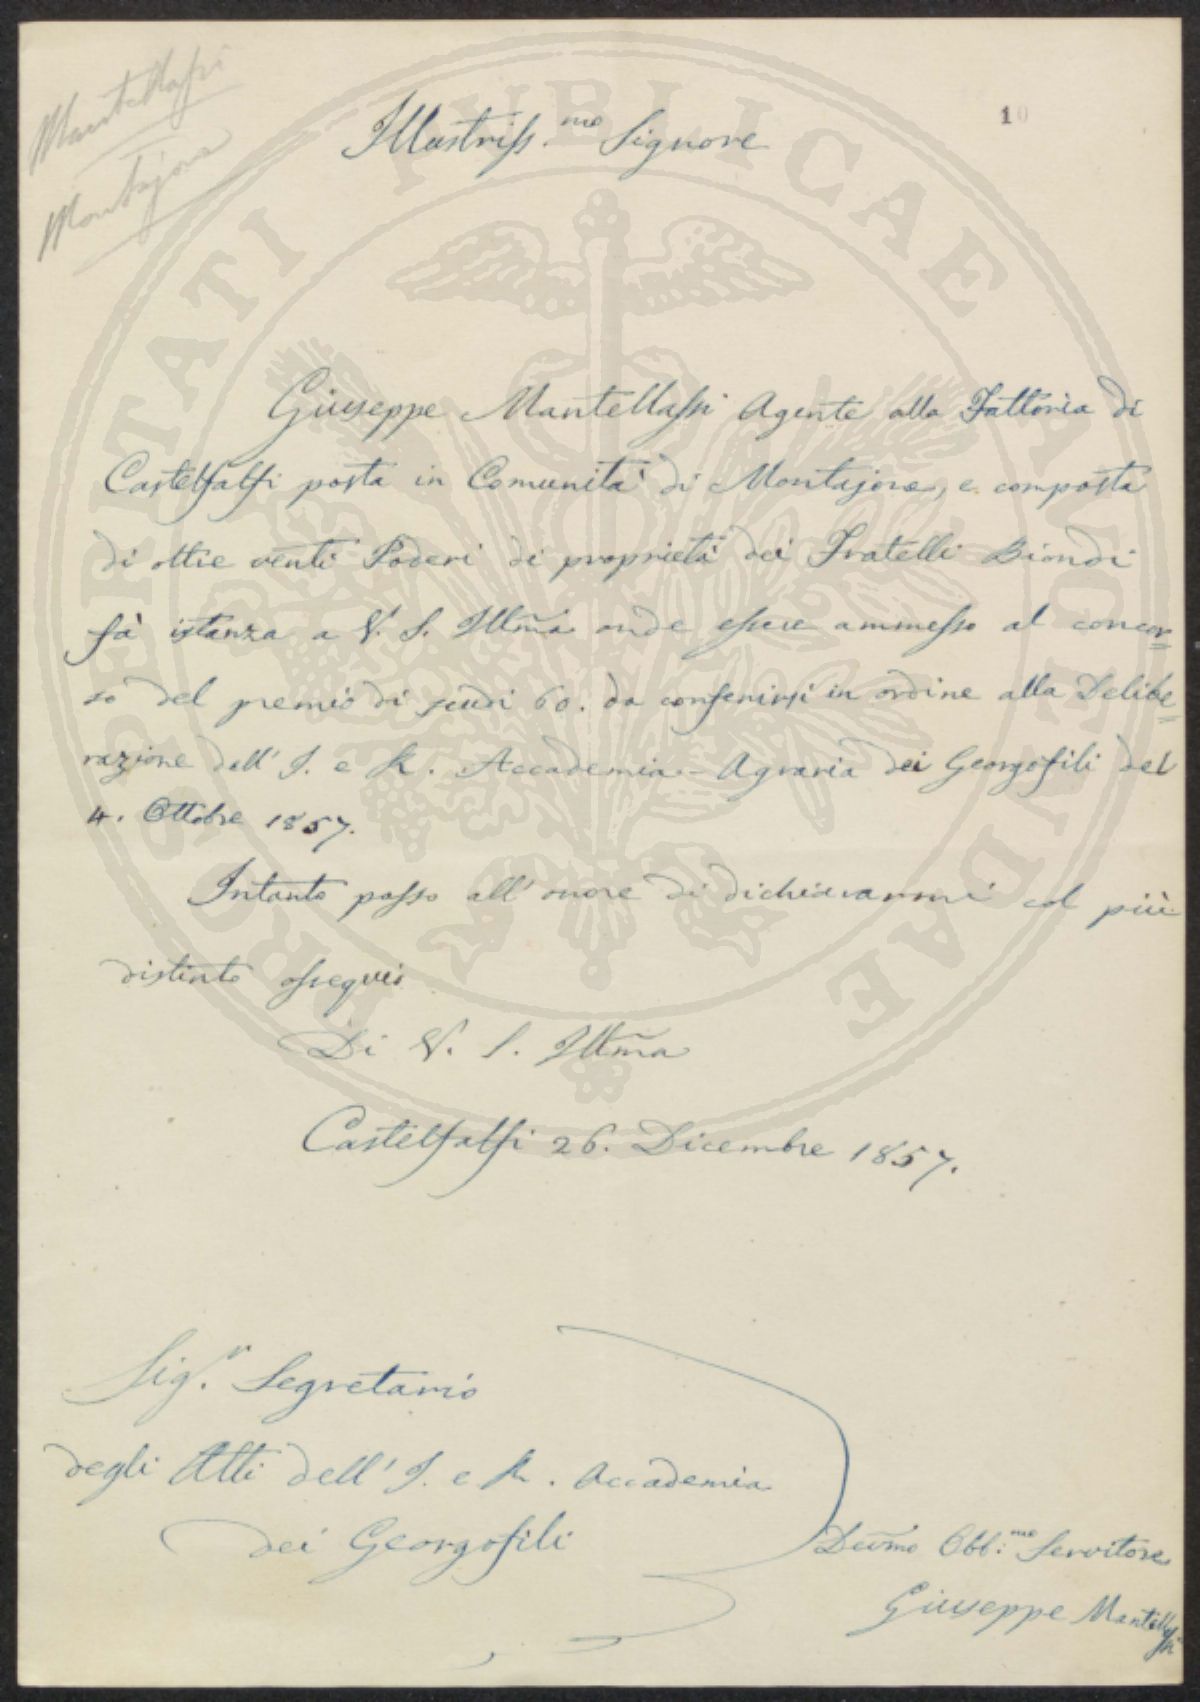 Mantellassi
Montajone
10
Illustriss.mo Signore
Giuseppe Mantellassi Agente alla Fattoria di
Castelfalfi posta in Comunità di Montajone, e composta
di oltre venti Poderi di proprietà dei Fratelli Biondi
fà istanza a V. S. Illma onde essere ammesso al concor=
so del premio di scudi 60. da conferirsi in ordine alla Delibe=
razione dell' I. e R. Accademia Agraria dei Georgofili del
4. Ottobre 1857.
Intanto passo all' onore di dichiararmi col più
distinto ossequio
Di V. S. Illma
Castelfalfi 26. Dicembre 1857.
Sig.r Segretario
degli Atti dell' I. e R. Accademia
dei Georgofili
Devmo Obb:mo Servitore
Giuseppe Mantellassi
PROSPERITATI PUBLICAE AUGENDAE